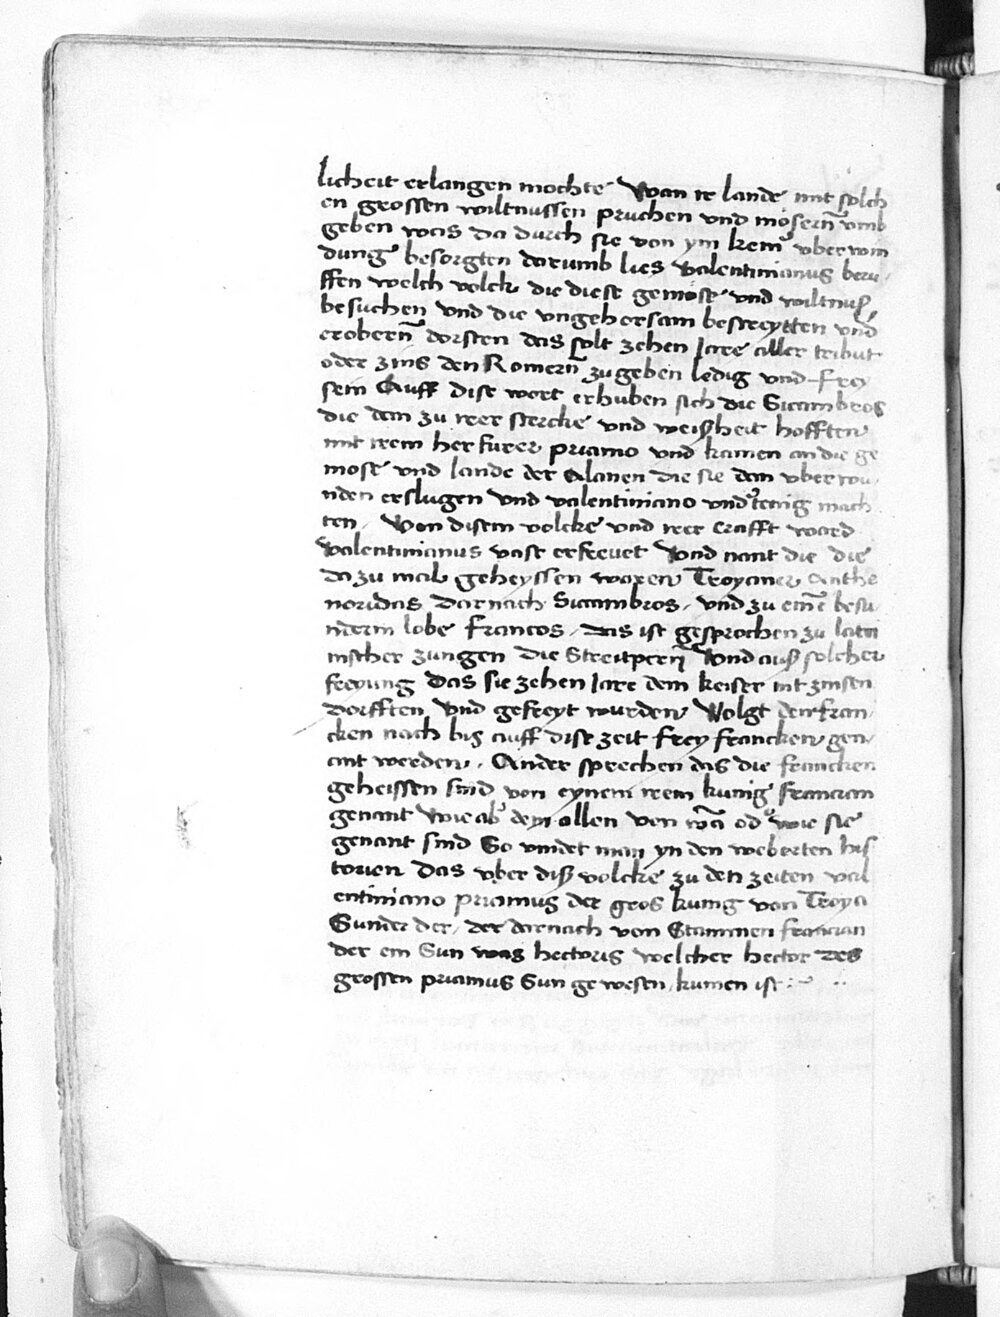 licheit erlangen mochte Wan ir lande mit solch
en grossen wiltnussen pruchen vnd mösern̄ vmb
geben was da durch sie von ym kein vber win
dung besorgten darumb lies valentinianus beru
ffen welch volck die diese gemöse vnd wiltnuß
besuchen vnd die vngehorsam bestreytten vnd
erobern̄ dorsten das solt zehen Jare aller tribut
oder zins den Romern̄ zugeben ledig vnd frey
sein Auff dise wort erhuben sich die Sicambros
die dem zu irer stercke vnd weißheit hofften
mit irem herfurer priamo vnd kamen an die ge
mose vnd lande der Alanen die sie dem vber wu
nden erslugen vnd valentiniano vndtenig mach
ten Von disem volcke vnd irer crafft ward
valentinianus vast erfrevet Vnd nant die die
dazu mal geheyssen waren Troyaner Anthe
noridas darnach Sicambros vnd zu eine besu
nderm lobe Francos das ist gesprochen zu latei
nischer zungen die Streitpern̄ Vnd auß solcher
freyung das sie zehen Jare dem keiser nit zinsen
dorfften vnd gefreyt wurden Volgt den fran
cken nach bis auff dise zeit frey francken gen
ant werden Ander sprechen das die francken
geheissen sind von eynem irem kunig francian
genant Wie ab dem allen von wa od wie sie
genant sind So vindet man yn den weberten his
torien Das vber diß volcke zu den zeiten val
entiniano priamus der gros kunig von Troya
Sunder der der darnach von Stammen francian
der ein Sun was hectoris welcher hector des
grossen priamus Sun gewesen kumen ist